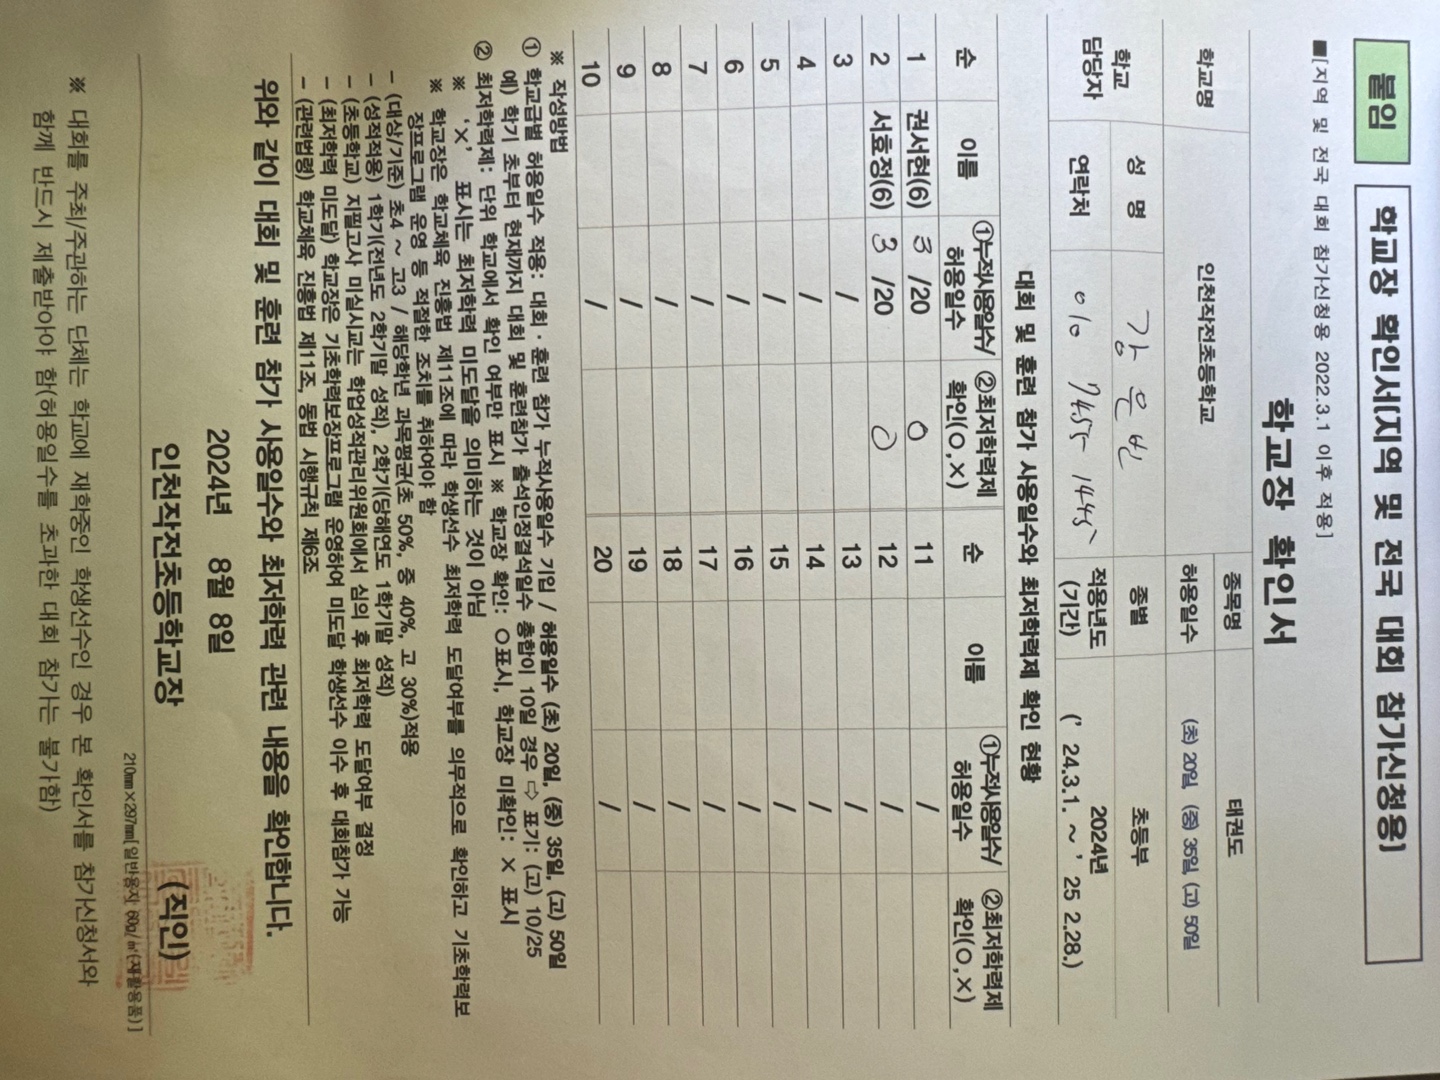 붙임
학교장 확인서[지역 및 전국 대회 참가신청용]
■[지역 및 전국 대회 참가신청용 2022.3.1 이후 적용]
학교장 확인서
학교명 인천작전초등학교 종목명 태권도
허용일수 (초) 20일 (중) 35일 (고) 50일
학교 담당자 성 명 강은빈 종별 초등부
연락처 010 7455 1445 적용년도 (기간) 2024년 (' 24.3.1. ~ ' 25 2.28.)
대회 및 훈련 참가 사용일수와 최저학력제 확인 현황
순 이름 ①누적사용일수/허용일수 ②최저학력제 확인(O,X) 순 이름 ①누적사용일수/허용일수 ②최저학력제 확인(O,X)
1 권서현(6) 3 /20 O 11 /
2 서효정(6) 3 /20 O 12 /
3 / 13 /
4 / 14 /
5 / 15 /
6 / 16 /
7 / 17 /
8 / 18 /
9 / 19 /
10 / 20 /
※ 작성방법
① 학교급별 허용일수 적용: 대회·훈련 참가 누적사용일수 기입 / 허용일수 (초) 20일, (중) 35일, (고) 50일
예) 학기 초부터 현재까지 대회 및 훈련참가 출석인정결석일수 총합이 10일 경우 ⇨ 표기: (고) 10/25
② 최저학력제: 단위 학교에서 확인 여부만 표시 ※ 학교장 확인: O표시, 학교장 미확인: X 표시
※ 'X' 표시는 최저학력 미도달을 의미하는 것이 아님
※ 학교장은 학교체육 진흥법 제11조에 따라 학생선수 최저학력 도달여부를 의무적으로 확인하고 기초학력보
장프로그램 운영 등 적절한 조치를 취하여야 함
- (대상/기준) 초4 ~ 고3 / 해당학년 과목평균(초 50%, 중 40%, 고 30%)적용
- (성적적용) 1학기(전년도 2학기말 성적), 2학기(당해연도 1학기말 성적)
- (초등학교) 지필고사 미실시교는 학업성적관리위원회에서 심의 후 최저학력 도달여부 결정
- (최저학력 미도달) 학교장은 기초학력보장프로그램 운영하여 미도달 학생선수 이수 후 대회참가 가능
- (관련법령) 학교체육 진흥법 제11조, 동법 시행규칙 제6조
위와 같이 대회 및 훈련 참가 사용일수와 최저학력 관련 내용을 확인합니다.
2024년 8월 8일
인천작전초등학교장 (직인)
210㎜×297㎜[일반용지 60g/㎡(재활용품)]
※ 대회를 주최/주관하는 단체는 학교에 재학중인 학생선수인 경우 본 확인서를 참가신청서와
함께 반드시 제출받아야 함(허용일수를 초과한 대회 참가는 불가함)